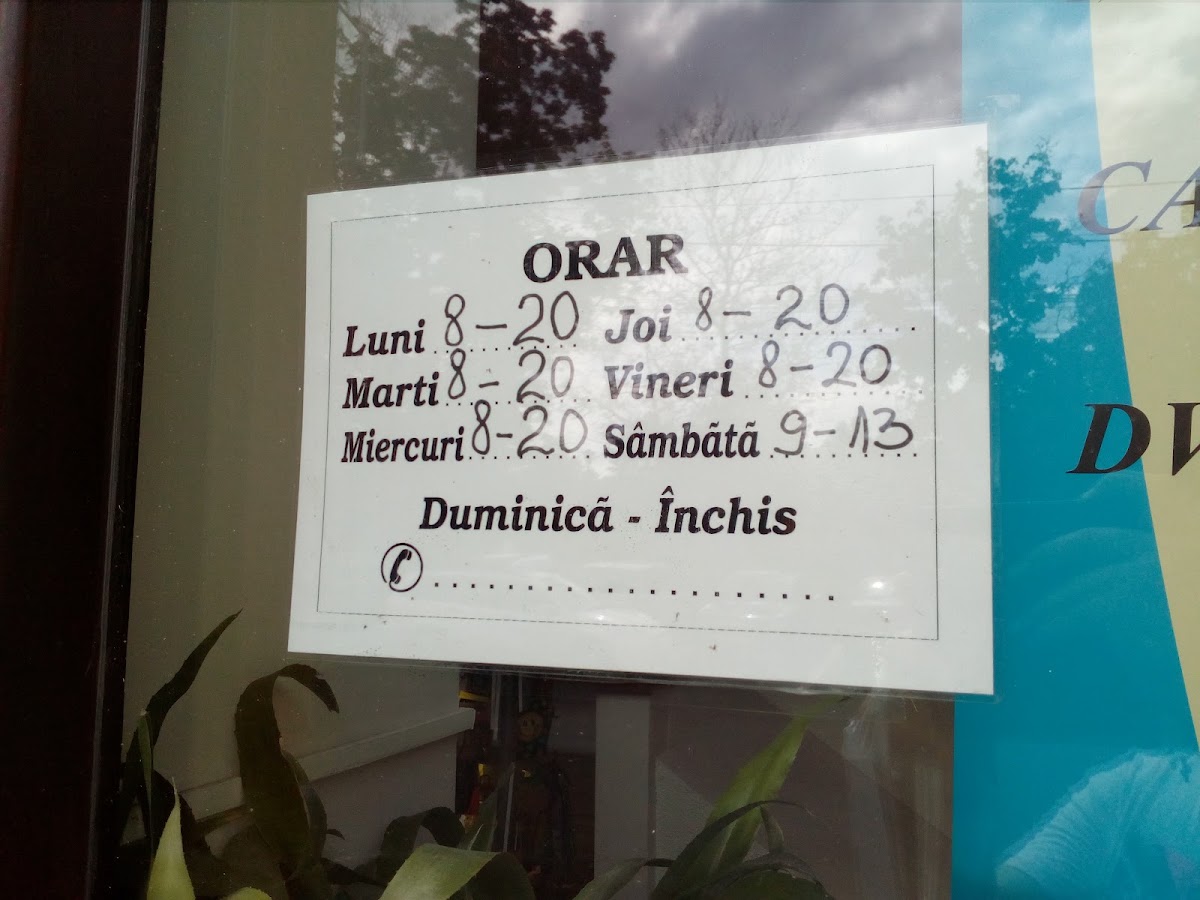 ORAR
Luni 8-20 Joi 8-20
Marti 8-20 Vineri 8-20
Miercuri 8-20 Sâmbãtã 9-13
Duminicã - Închis
CA
DV